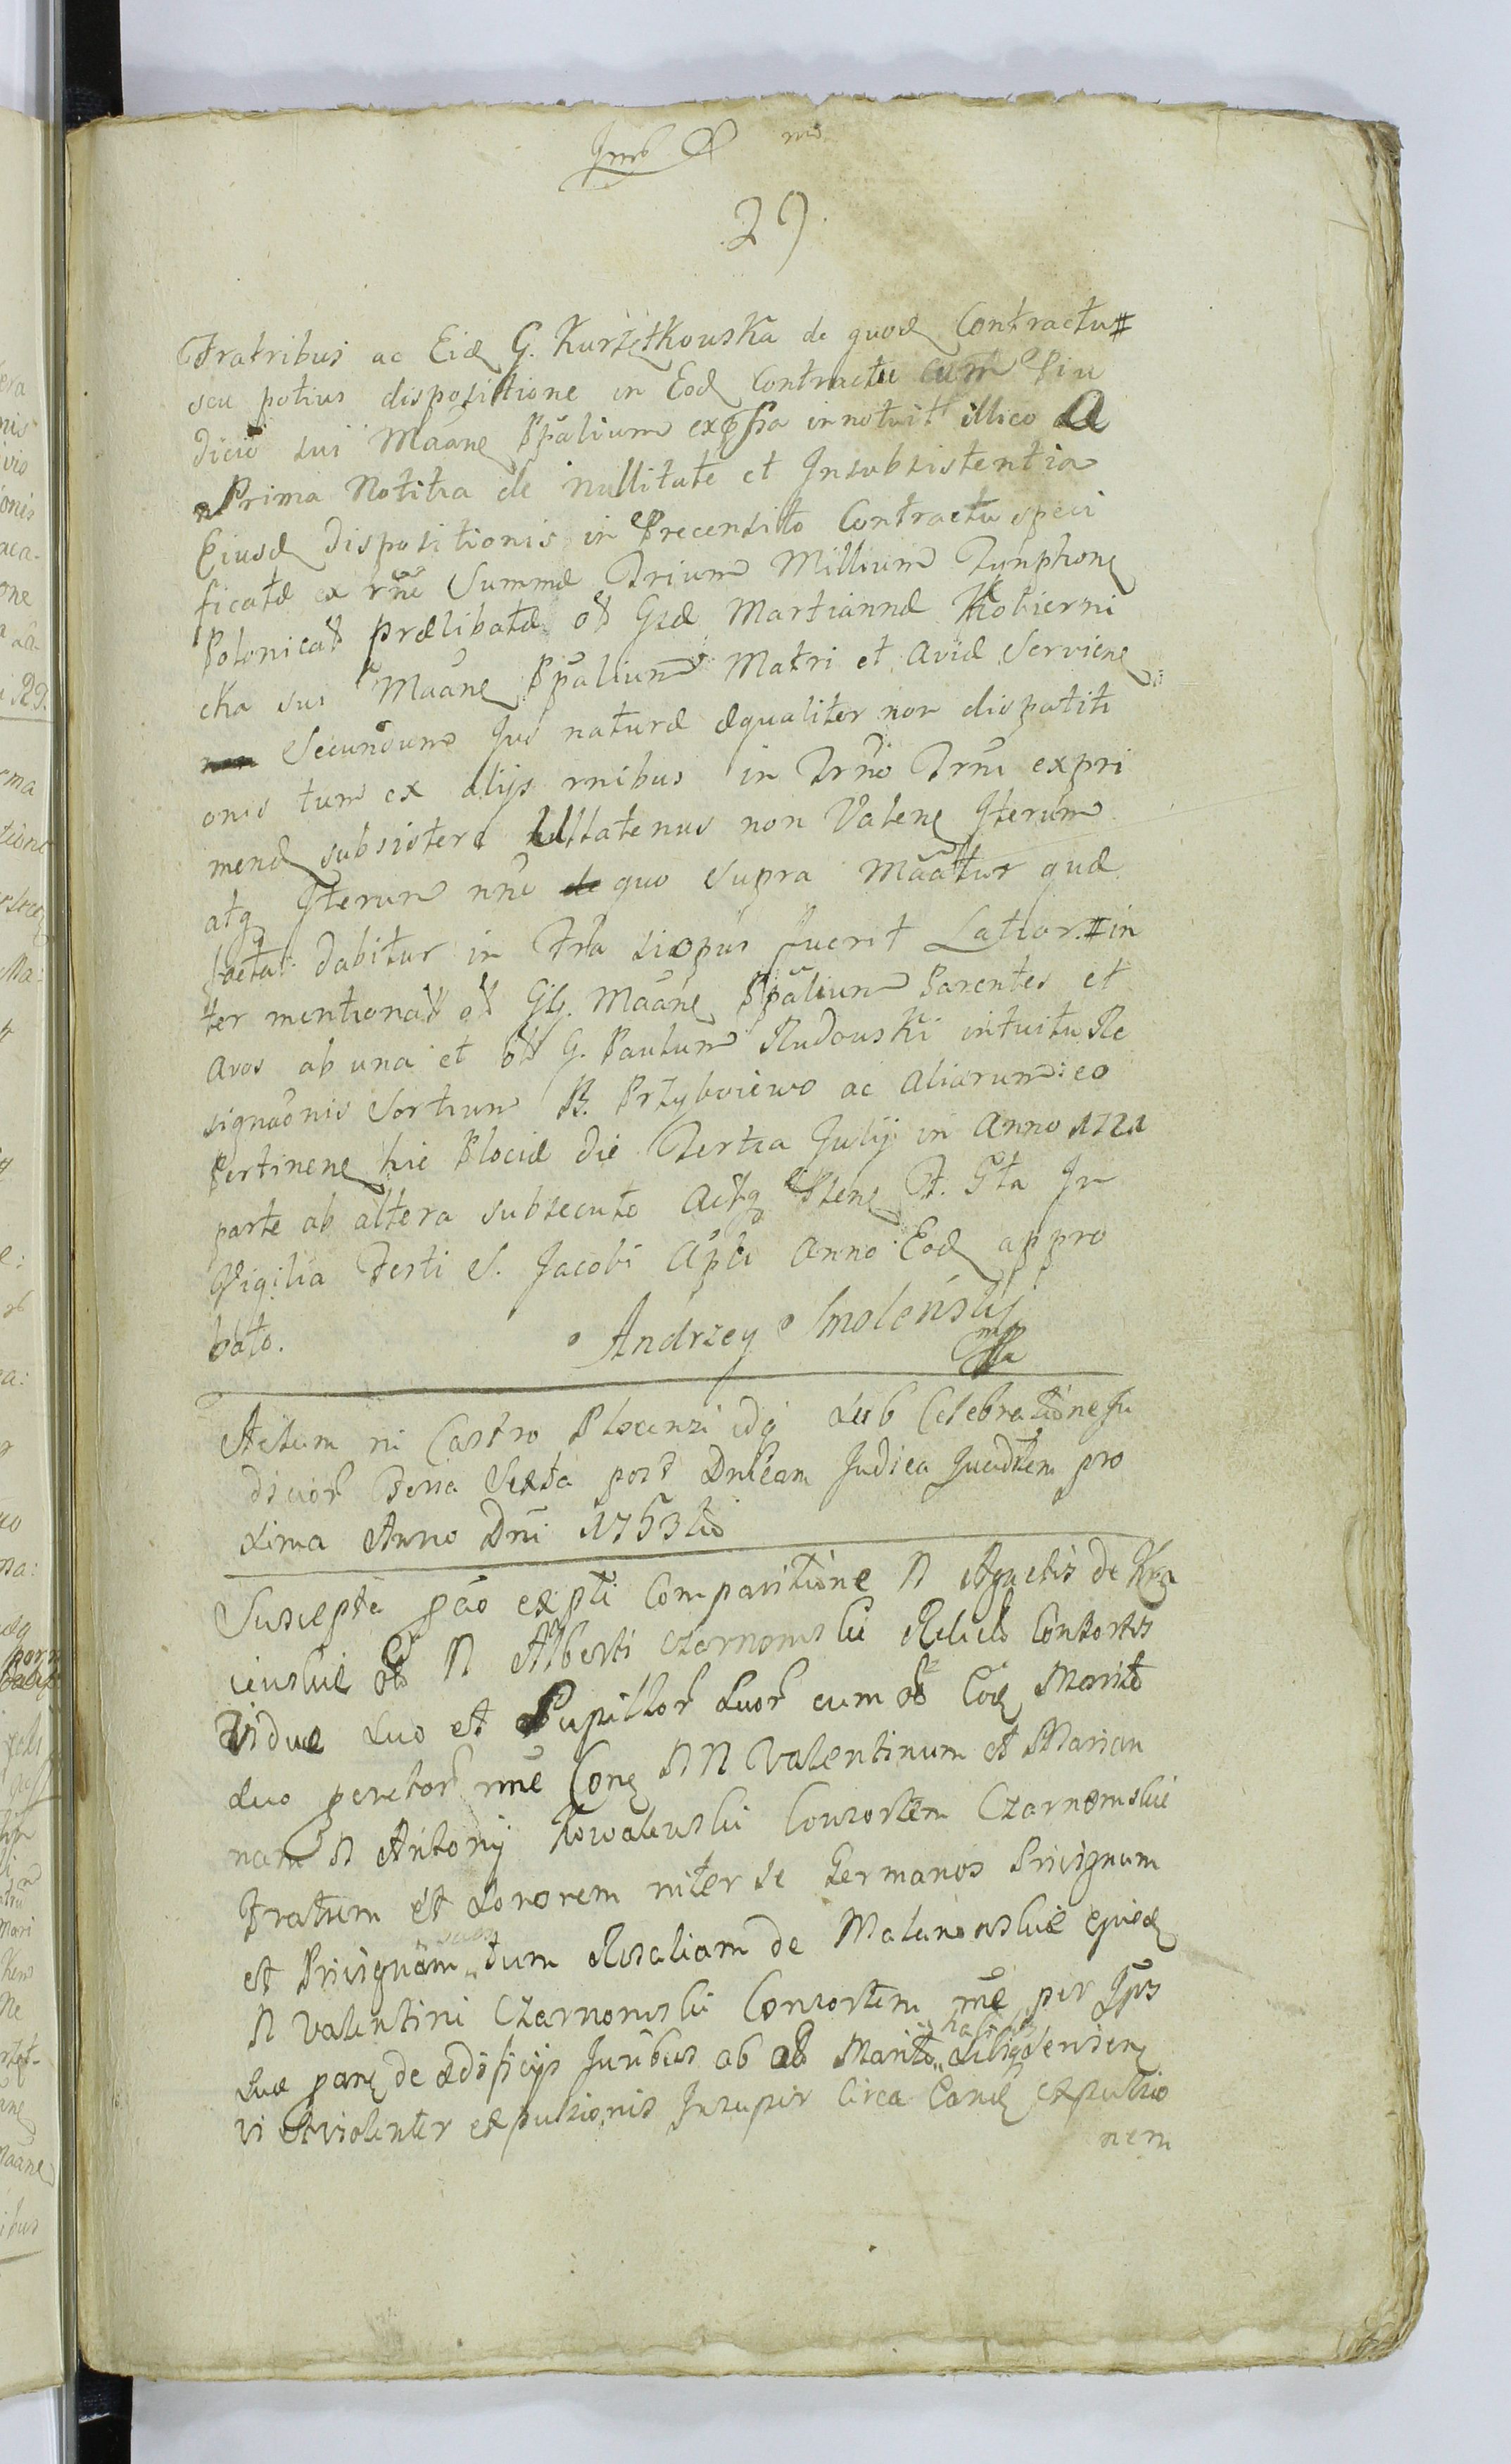 29.
Fratribus ac Eid G. Kurzętkouska de quod Contractu
seu potius dispositione in Eod Contractu cum
dicio sui Māane Ppalium expssa innotuit illico a
Prima Notitia de Nullitate et Insubsistentia
Eiusd dispositionis in Precensito Contractu speci
ficatæ ex rñe Summæ Trium Millium Tynphone
Polonical prælibatæ ol Gsæ Martiannæ Kobierni
cka sui Māane Ppalium Matri et Aviæ Serviene
Secundum Jus naturæ æqualiter non dispatiti
onis tum ex alijs rnibus in Trno Trni expri
mend subsistere Ullatenus non Valene Iterum
atq Iterum nñe quo Supra Māatur quæ
facta dabitur in Tra si opus fuerit Latior in
ter mentionat ol GG. Māane Ppalium Parentes et
Avos ab una et ol G. Paulum Rudouski intuitu Re
signaōnis Sortium B. Przyboiewo ac Aliarum eo
Pertinene hic Plociæ die Tertia Julij in Anno 1721
parte ab altera subsecuto Actq Pstene F. 5ta In
Vigilia Festi S. Jacobi Apli Anno Eod appro
bato.
Andrzey Smolenskj
mpp
Actum in Castro Plocensi idq sub Celebratione Ju
dicior Feria Sexta post Dnicam Judica Quadrlem pro
xima Anno Dni 1753tio
Suscepta pāo expti Comparitione N Agnetis de Kra
iewskie ol N Alberti Czarnomski Relictæ Consortis
Viduæ suo et Pupillor suor cum ol Eod Marito
suo peretor nñe Cone NN Valentinum et Marian
nam N Antonij Kowalewski Consortem Czarnomskie
Fratrem et Sororem inter se Germanos Privignum
et Privignam suam tum Rosaliam de Malanowskie ejusd
N Valentini Czarnomski Consortem rñe per Ipos
suæ pane de ædificijs Juribus ab ol Marito habitis
vi et violenter expulsionis Insuper Circa Eand expulsio
nem